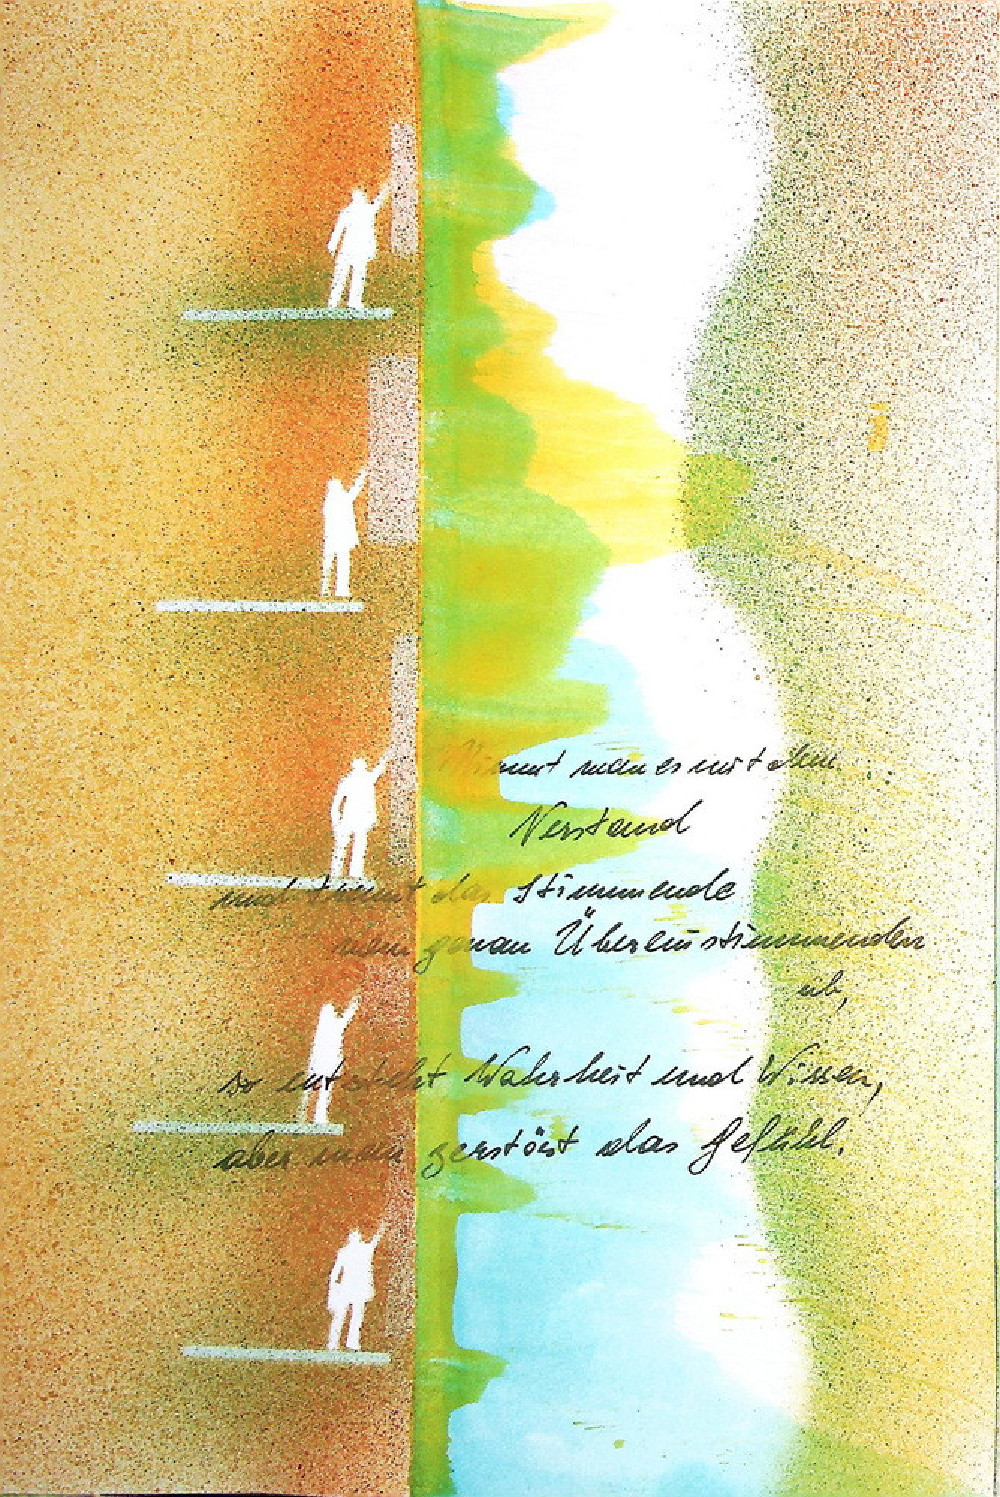 Nimmt man es mit dem
Verstand
und trennt das Stimmende
vom genau Übereinstimmenden
ab,
so entsteht Wahrheit und Wissen,
aber man zerstört das Gefühl.